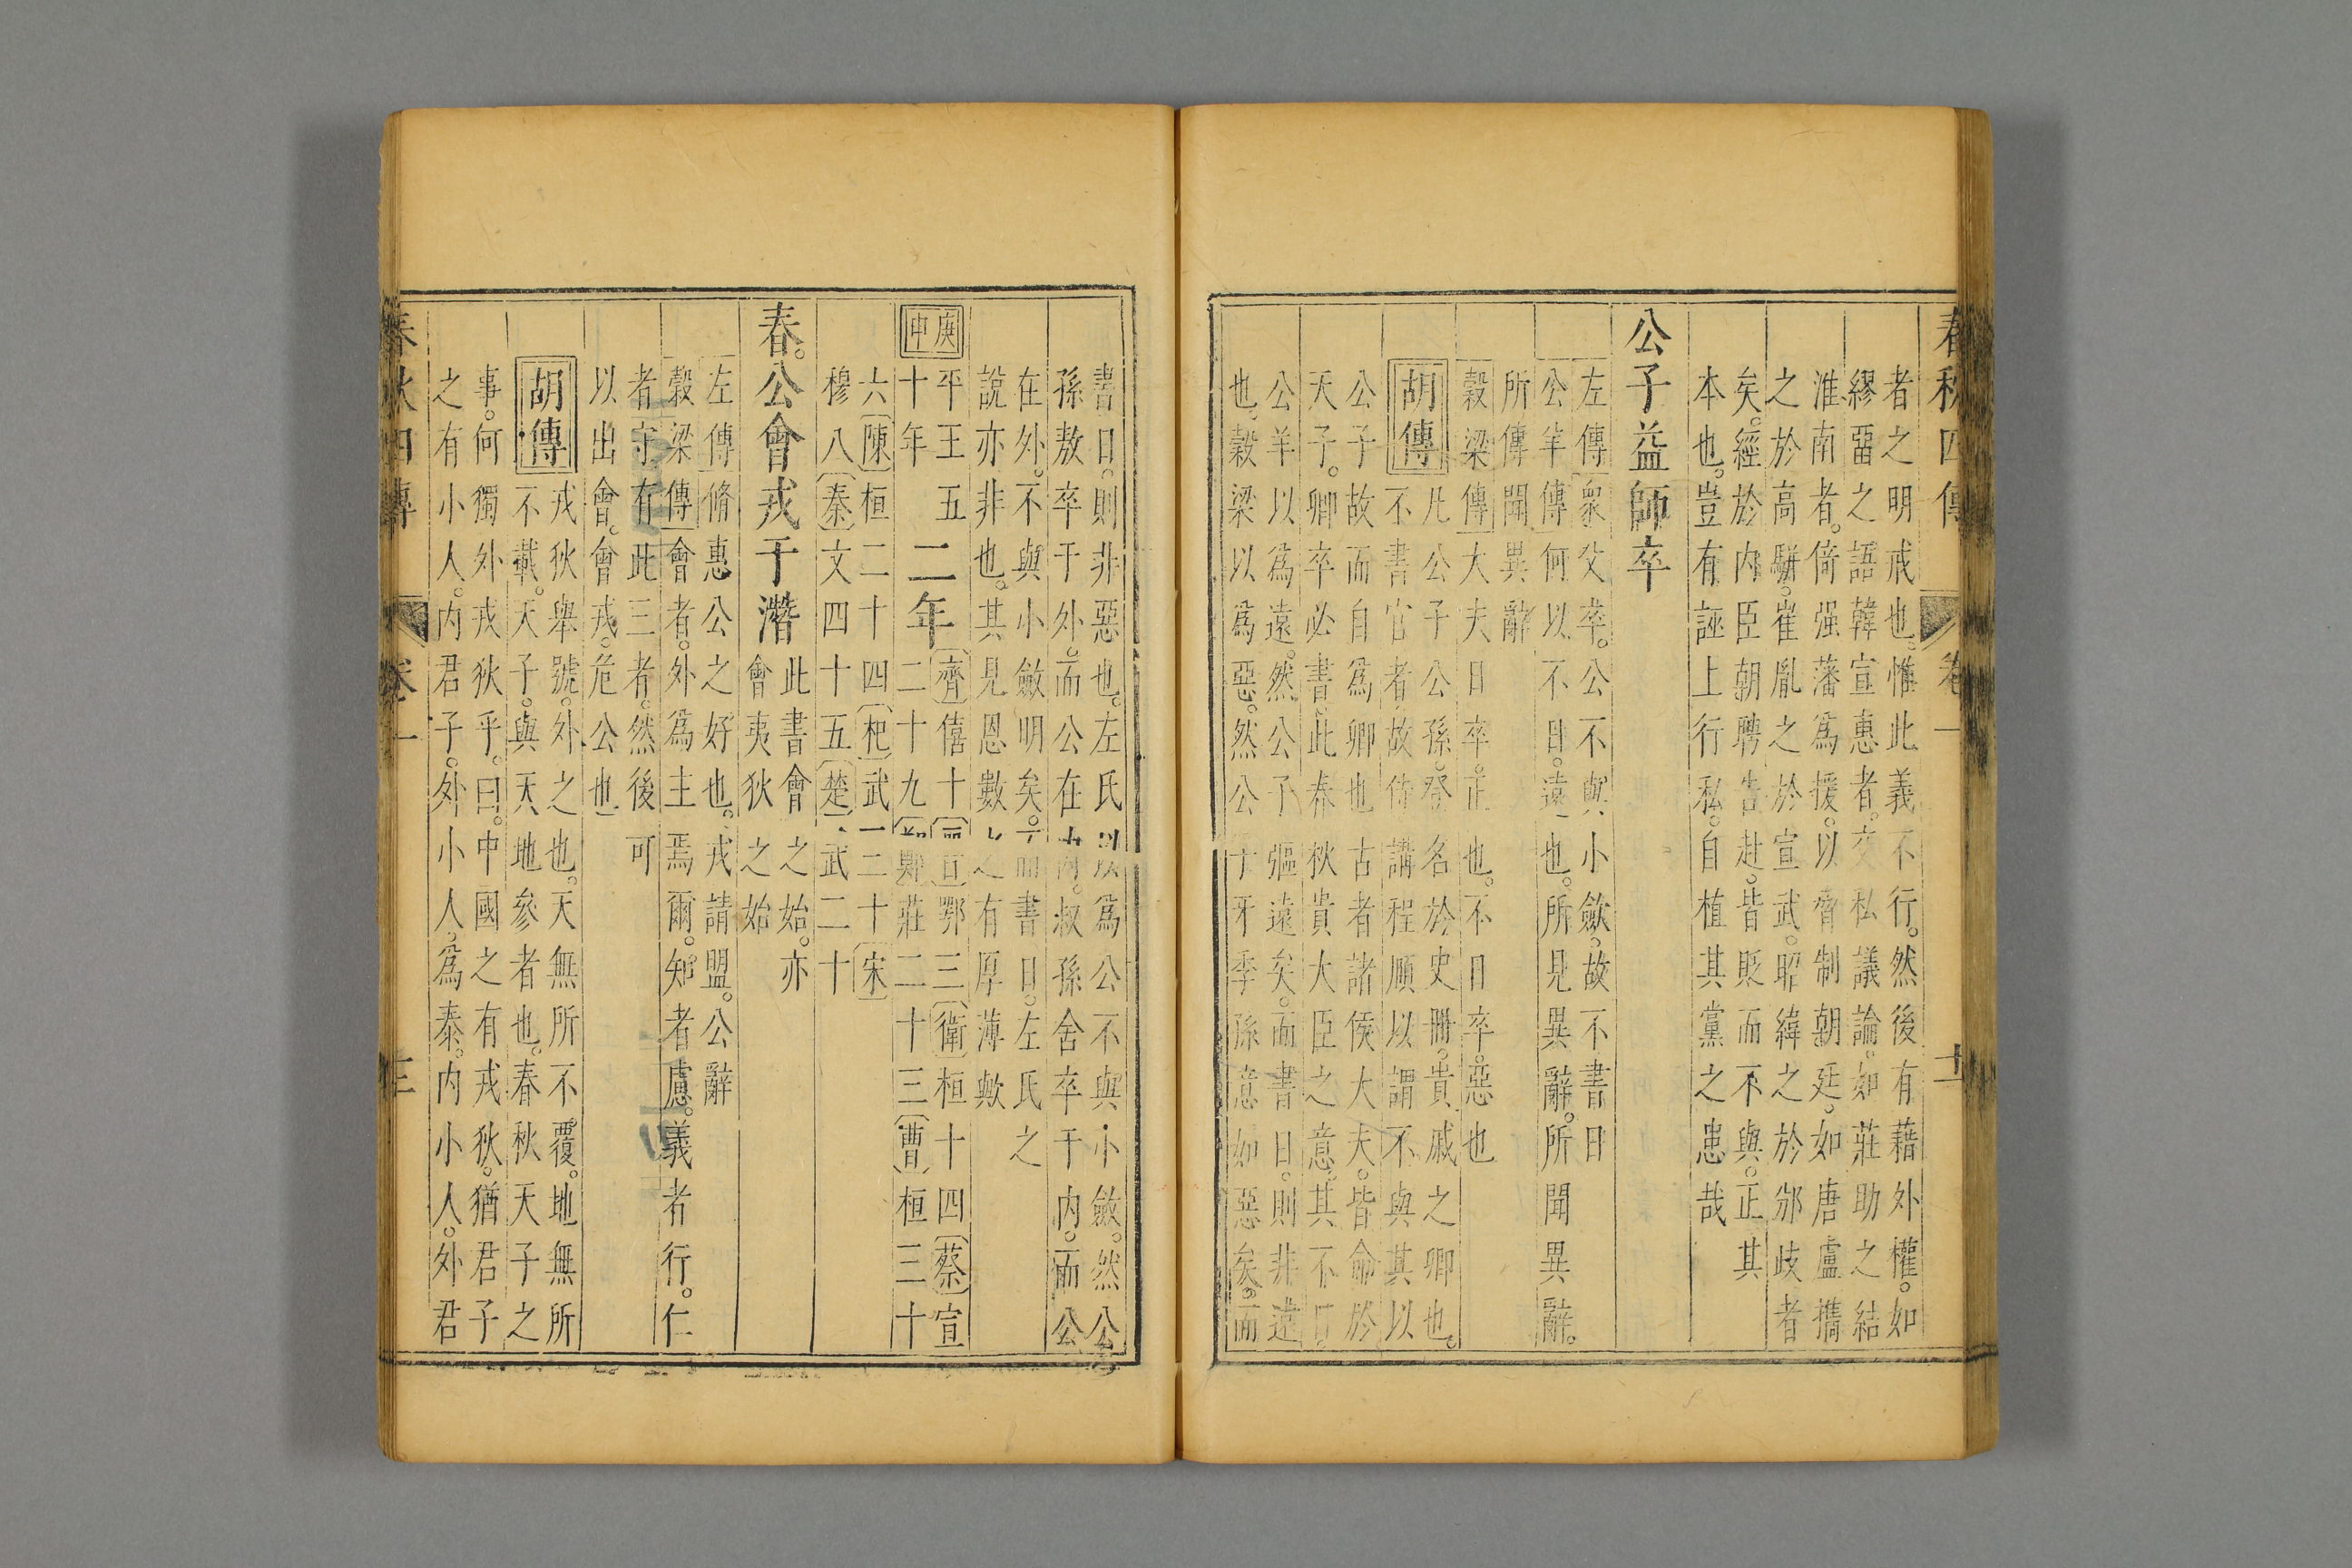 春秋四傳 卷一 十二
者之明戒也。惟此義不行。然後有藉外權。如
繆畱之語韓宣惠者。交私議論。如莊助之結
淮南者。倚强藩爲援。以脅制朝廷。如唐盧攜
之於高駢。崔胤之於宣武。昭緯之於邠歧者
矣。經於内臣朝聘告赴。皆貶而不與。正其
本也。豈有誣上行私。自植其黨之患哉
公子益師卒
左傳 衆父卒。公不與小斂。故不書日
公羊傳 何以不日。遠也。所見異辭。所聞異辭。
所傳聞異辭
穀梁傳 大夫日卒。正也。不日卒。惡也
胡傳 凡公子公孫。登名於史冊。貴戚之卿也。
不書官者。故侍講程頤以謂不與其以
公子故而自爲卿也古者諸侯大夫。皆命於
天子。卿卒必書。此春秋貴大臣之意。其不日。
公羊以爲遠。然公子彄遠矣。而書日。則非遠
也。穀梁以爲惡。然公子牙季孫意如惡矣。而
書日。則非惡也。左氏以爲公不與小斂。然公
孫敖卒于外。而公在内。叔孫舍卒于内。而公
在外。不與小斂明矣。而書日。左氏之
說亦非也。其見恩數之有厚薄歟
庚申 平王五十年 二年 齊僖十 晉鄂三 衛桓十四 蔡宣
二十九 鄭莊二十三 曹桓三十
六 陳桓二十四 杞武二十 宋
穆八 秦文四十五 楚武二十
春。公會戎于潛 此書會之始。亦
會夷狄之始
左傳 脩惠公之好也。戎請盟。公辭
穀梁傳 會者。外爲主焉爾。知者慮。義者行。仁
者守。有此三者。然後可
以出會。會戎。危公也
胡傳 戎狄舉號。外之也。天無所不覆。地無所
不載。天子。與天地參者也。春秋天子之
事。何獨外戎狄乎。曰。中國之有戎狄。猶君子
之有小人。内君子。外小人。爲泰。内小人。外君
春秋四傳 卷一